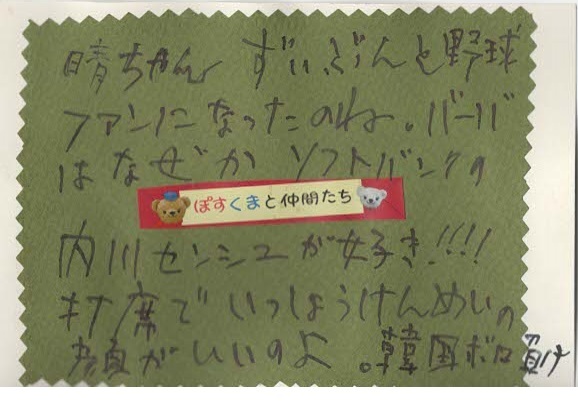 晴ちゃん ずいぶんと野球
ファンになったのね。バーバ
はなぜか ソフトバンクの
ぽすくまと仲間たち
内川センシュが好き!!!!
打席でいっしょうけんめいの
顔がいいのよ。韓国ボロ負け